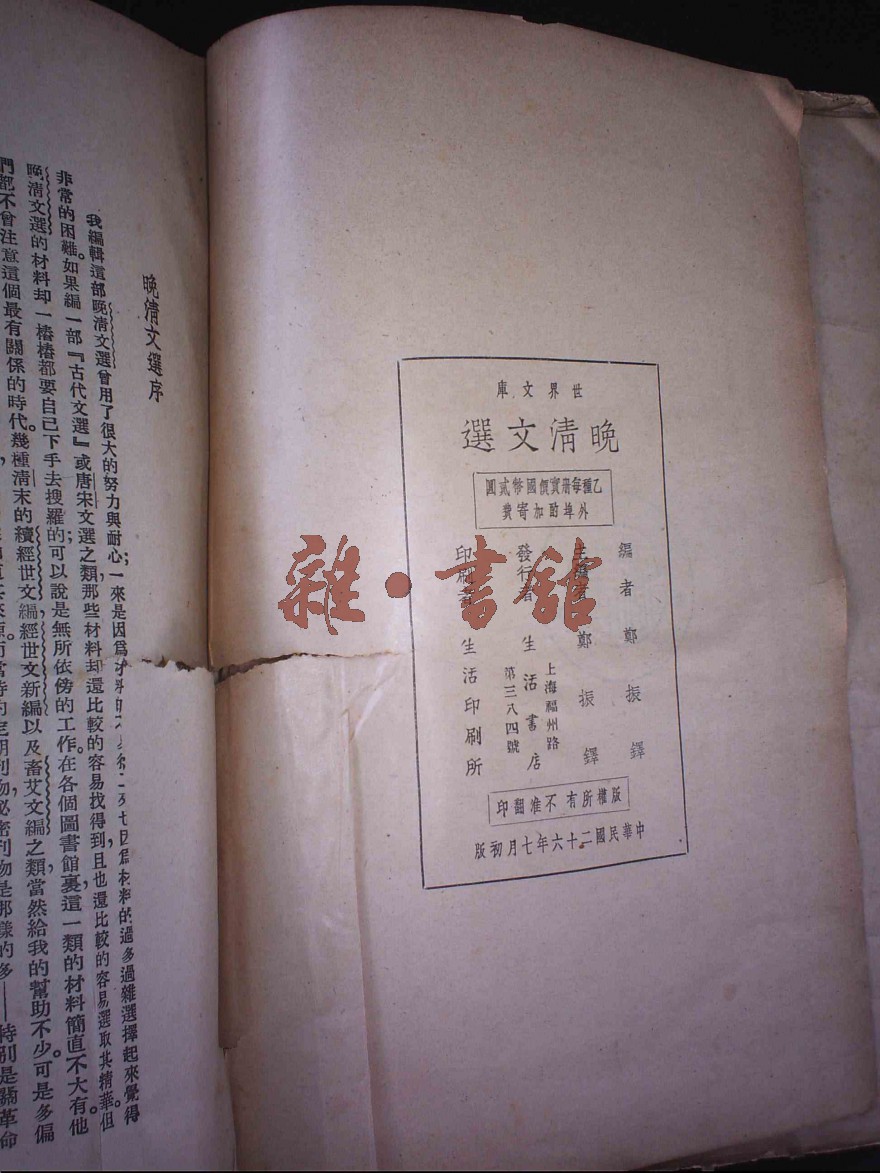 世界文庫
晚清文選
乙種每册實價國幣貳圓
外埠酌加寄費
編者 鄭振鐸
主編者 鄭振鐸
發行者 生活書店
上海福州路
第三八四號
印刷者 生活印刷所
版權所有不准翻印
中華民國二十六年七月初版
雜·書館
晚清文選序
我編輯這部晚清文選曾用了很大的努力與耐心；一來是因爲材料的
因爲材料的過多過雜選擇起來覺得
非常的困難。如果編一部『古代文選』或唐宋文選之類，那些材料却還比較的容易找得到，且也還比較的容易選取其精華。但
晚清文選的材料却一樁樁都要自己下手去搜羅的；可以說是無所依傍的工作。在各個圖書館裏，這一類的材料簡直不大有。他
們都不曾注意這個最有關係的時代。幾種清末的續經世文編，經世文新編以及畬艾文編之類，當然給我的幫助不少。可是多偏